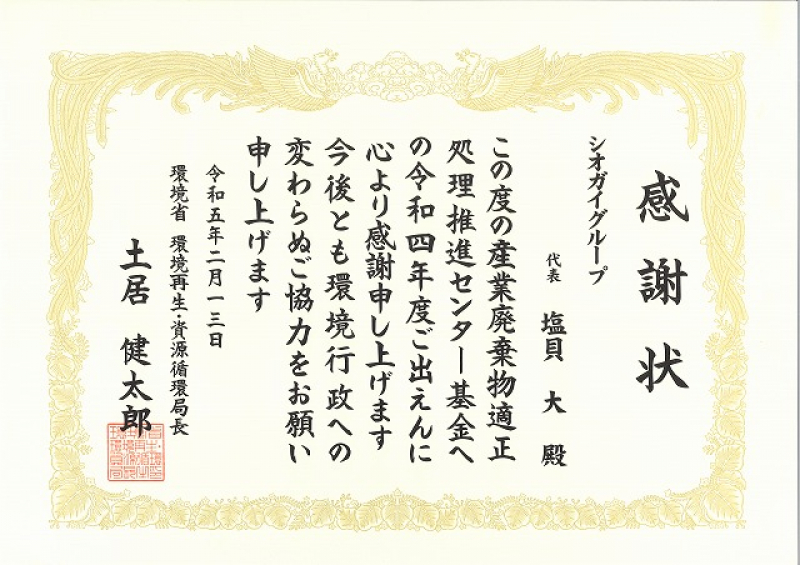 感謝状
シオガイグループ
代表 塩貝 大 殿
この度の産業廃棄物適正
処理推進センター基金へ
の令和四年度ご出えんに
心より感謝申し上げます
今後とも環境行政への
変わらぬご協力をお願い
申し上げます
令和五年二月一三日
環境省 環境再生・資源循環局長
土居 健太郎